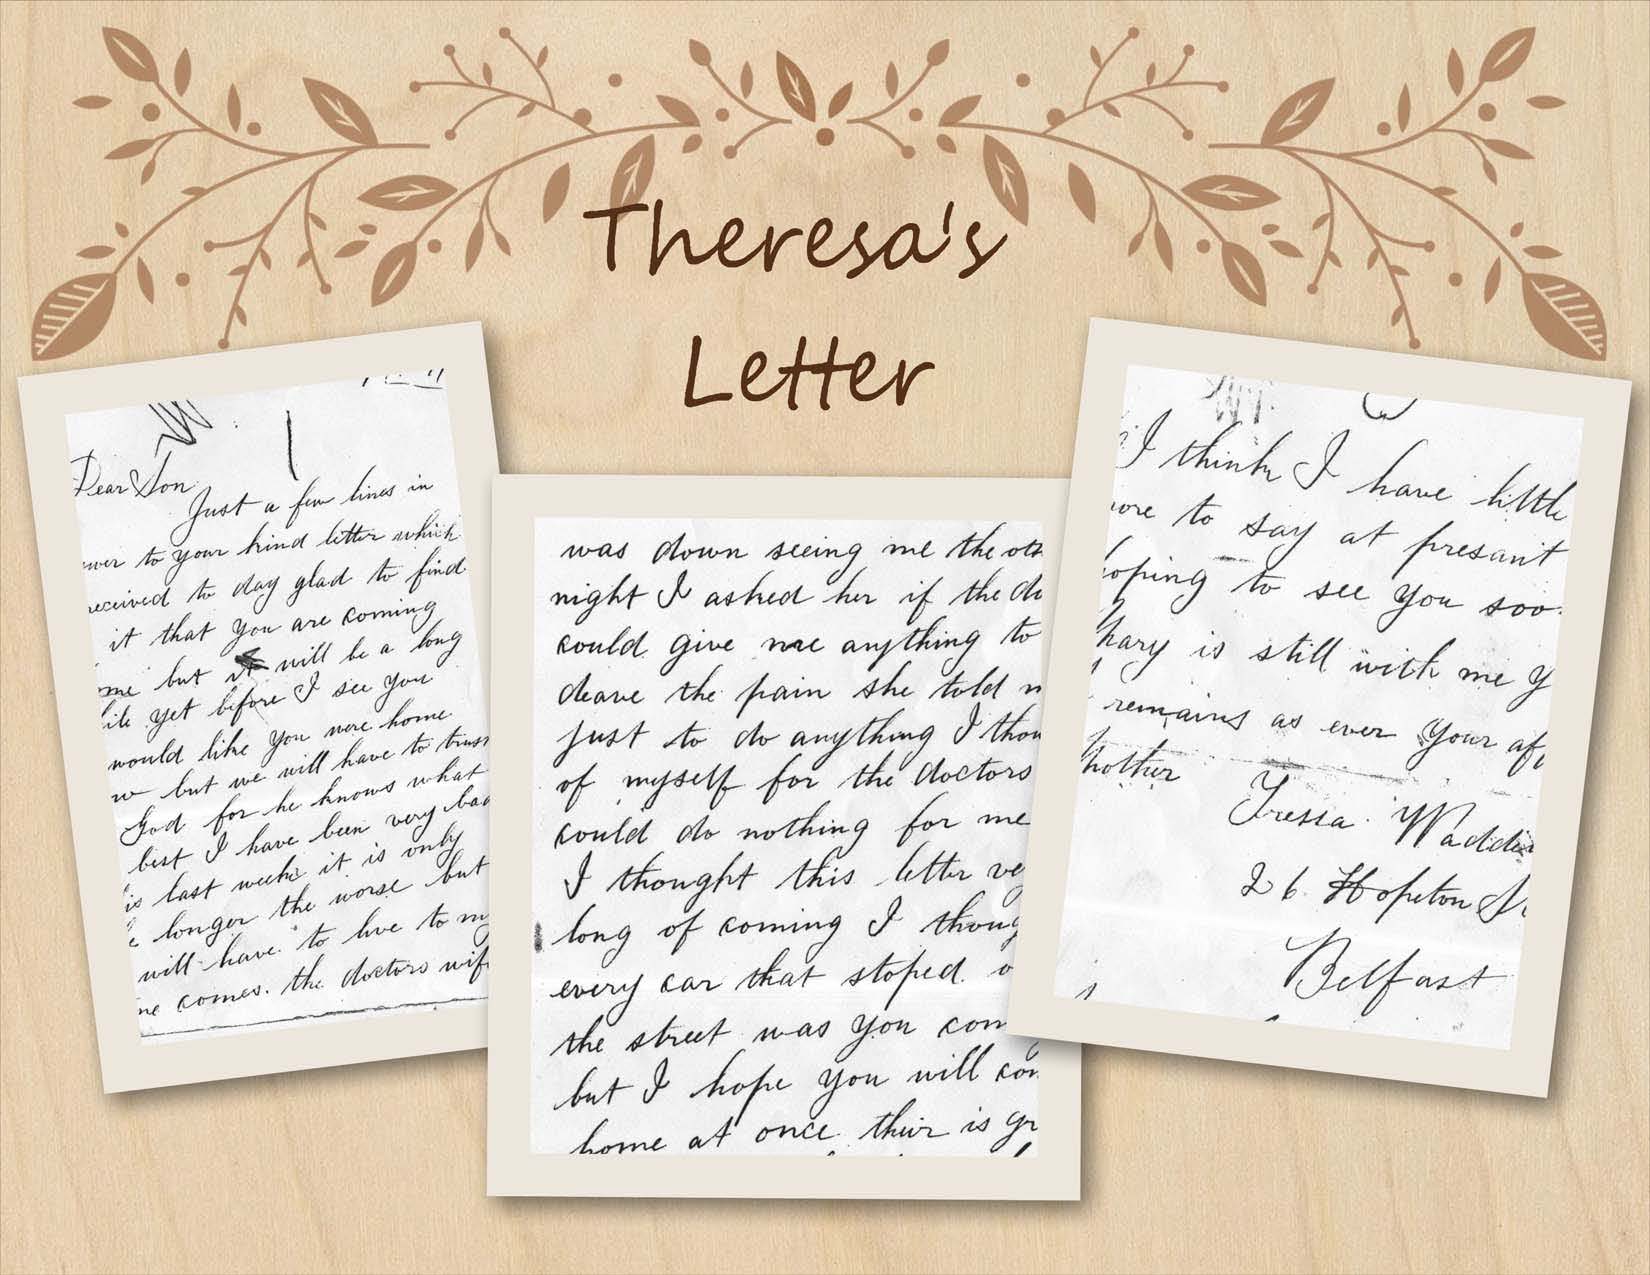 Theresa's
Letter
Dear Son
Just a few lines in
wer to your kind letter which
received to day glad to find
it that you are coming
me but it will be a long
ile yet before I see you
would like you were home
w but we will have to trust
God for he knows what
best I have been very bad
is last week it is only
e longer the worse but
will have to live to my
me comes. the doctors wife
was down seeing me the oth
night I asked her if the do
could give me anything to
deave the pain she told m
just to do anything I thou
of myself for the doctors
could do nothing for me
I thought this letter ve
long of coming I thoug
every car that stoped
the street was you com
but I hope you will com
home at once their is gr
I think I have little
ore to say at presant
hoping to see you soo
Mary is still with me
remains as ever your aff
Mother
Tressa Waddin
26 Hopeton St
Belfast